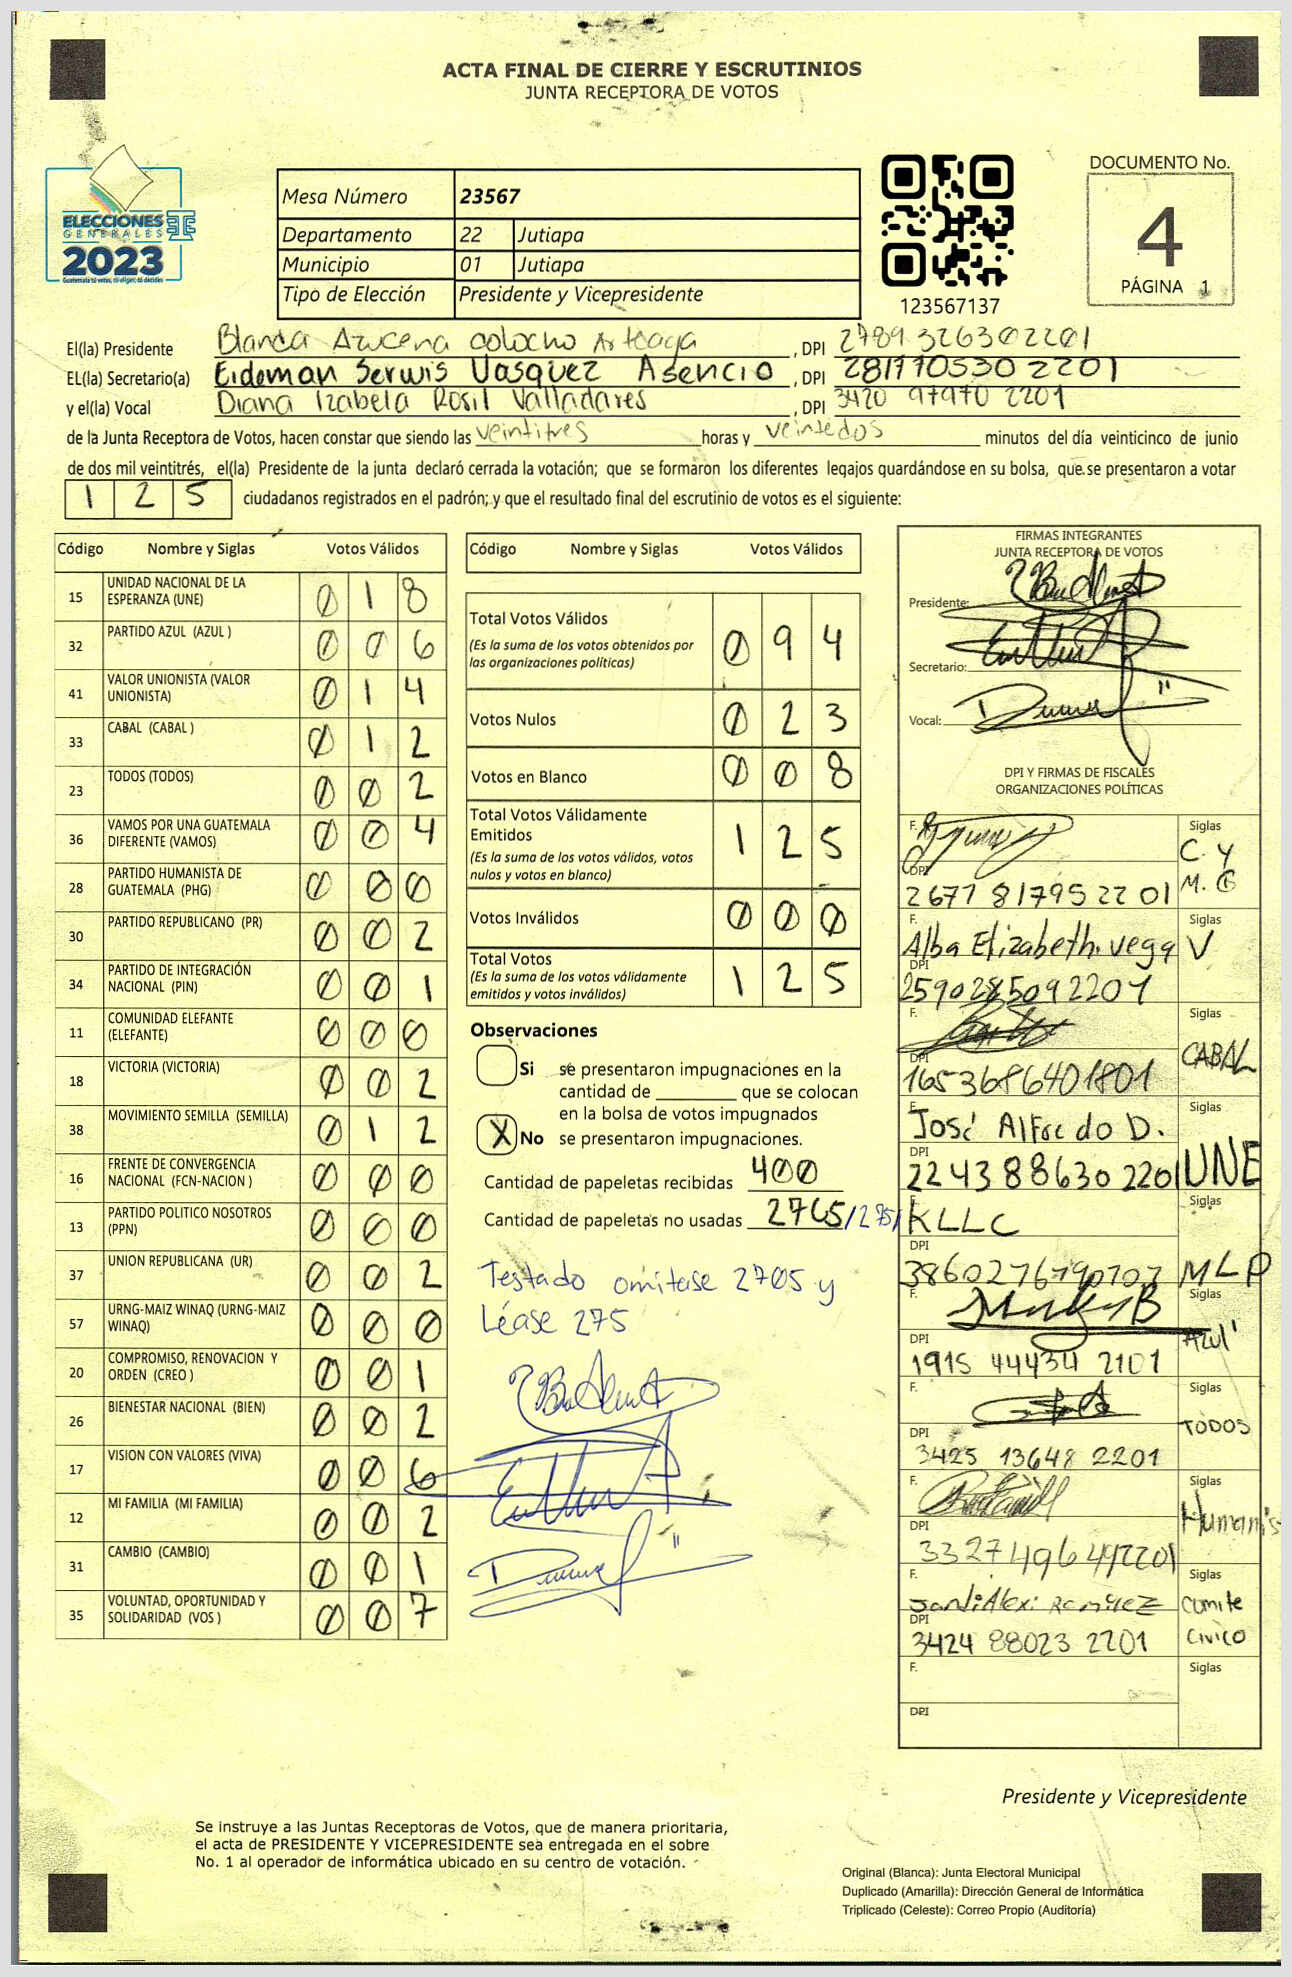 ACTA FINAL DE CIERRE Y ESCRUTINIOS
JUNTA RECEPTORA DE VOTOS
ELECCIONES
GENERALES
2023
Guatemala tú votas, tú eliges, tú decides
Mesa Número 23567
Departamento 22 Jutiapa
Municipio 01 Jutiapa
Tipo de Elección Presidente y Vicepresidente
123567137
DOCUMENTO No.
4
PÁGINA 1
El(la) Presidente Blanca Azucena colocho Arteaga , DPI 2789326302201
EL(la) Secretario(a) Eideman Serwis Vasquez Asencio , DPI 2811770530 2201
y el(la) Vocal Diana Izabela Rosil Valladares , DPI 3420 97970 2201
de la Junta Receptora de Votos, hacen constar que siendo las veintitres horas y veintedos minutos del día veinticinco de junio
de dos mil veintitrés, el(la) Presidente de la junta declaró cerrada la votación; que se formaron los diferentes legajos guardándose en su bolsa, que se presentaron a votar
1 2 5 ciudadanos registrados en el padrón; y que el resultado final del escrutinio de votos es el siguiente:
Código Nombre y Siglas Votos Válidos
15 UNIDAD NACIONAL DE LA ESPERANZA (UNE) 0 1 8
32 PARTIDO AZUL (AZUL ) 0 0 6
41 VALOR UNIONISTA (VALOR UNIONISTA) 0 1 4
33 CABAL (CABAL ) 0 1 2
23 TODOS (TODOS) 0 0 2
36 VAMOS POR UNA GUATEMALA DIFERENTE (VAMOS) 0 0 4
28 PARTIDO HUMANISTA DE GUATEMALA (PHG) 0 0 0
30 PARTIDO REPUBLICANO (PR) 0 0 2
34 PARTIDO DE INTEGRACIÓN NACIONAL (PIN) 0 0 1
11 COMUNIDAD ELEFANTE (ELEFANTE) 0 0 0
18 VICTORIA (VICTORIA) 0 0 2
38 MOVIMIENTO SEMILLA (SEMILLA) 0 1 2
16 FRENTE DE CONVERGENCIA NACIONAL (FCN-NACION ) 0 0 0
13 PARTIDO POLITICO NOSOTROS (PPN) 0 0 0
37 UNION REPUBLICANA (UR) 0 0 2
57 URNG-MAIZ WINAQ (URNG-MAIZ WINAQ) 0 0 0
20 COMPROMISO, RENOVACION Y ORDEN (CREO ) 0 0 1
26 BIENESTAR NACIONAL (BIEN) 0 0 2
17 VISION CON VALORES (VIVA) 0 0 6
12 MI FAMILIA (MI FAMILIA) 0 0 2
31 CAMBIO (CAMBIO) 0 0 1
35 VOLUNTAD, OPORTUNIDAD Y SOLIDARIDAD (VOS ) 0 0 7
Código Nombre y Siglas Votos Válidos
Total Votos Válidos 0 9 4
(Es la suma de los votos obtenidos por
las organizaciones políticas)
Votos Nulos 0 2 3
Votos en Blanco 0 0 8
Total Votos Válidamente
Emitidos 1 2 5
(Es la suma de los votos válidos, votos
nulos y votos en blanco)
Votos Inválidos 0 0 0
Total Votos 1 2 5
(Es la suma de los votos válidamente
emitidos y votos inválidos)
Observaciones
Si se presentaron impugnaciones en la
cantidad de ________ que se colocan
en la bolsa de votos impugnados
X No se presentaron impugnaciones.
Cantidad de papeletas recibidas 400
Cantidad de papeletas no usadas 2765/275/
Testado omitase 2705 y
Léase 275
FIRMAS INTEGRANTES
JUNTA RECEPTORA DE VOTOS
Presidente:
Secretario:
Vocal:
DPI Y FIRMAS DE FISCALES
ORGANIZACIONES POLÍTICAS
F. Siglas
C. y
M. G
DPI
2677 81795 22 01
F. Siglas
Alba Elizabeth. vega V
DPI
2590285092201
F. Siglas
CABAL
DPI
1653686401801
F. Siglas
José Alfredo D.
DPI
2243 88630 2201 UNE
F. Siglas
KLLC
DPI
3860276790707 MLP
F. Siglas
Azul
DPI
1915 44434 2101
F. Siglas
TODOS
DPI
3425 13648 2201
F. Siglas
Humanis
DPI
3327496492201
F. Siglas
Ramirez Comite
DPI
3424 88023 2201 Civico
F. Siglas
DPI
Presidente y Vicepresidente
Se instruye a las Juntas Receptoras de Votos, que de manera prioritaria,
el acta de PRESIDENTE Y VICEPRESIDENTE sea entregada en el sobre
No. 1 al operador de informática ubicado en su centro de votación.
Original (Blanca): Junta Electoral Municipal
Duplicado (Amarilla): Dirección General de Informática
Triplicado (Celeste): Correo Propio (Auditoría)